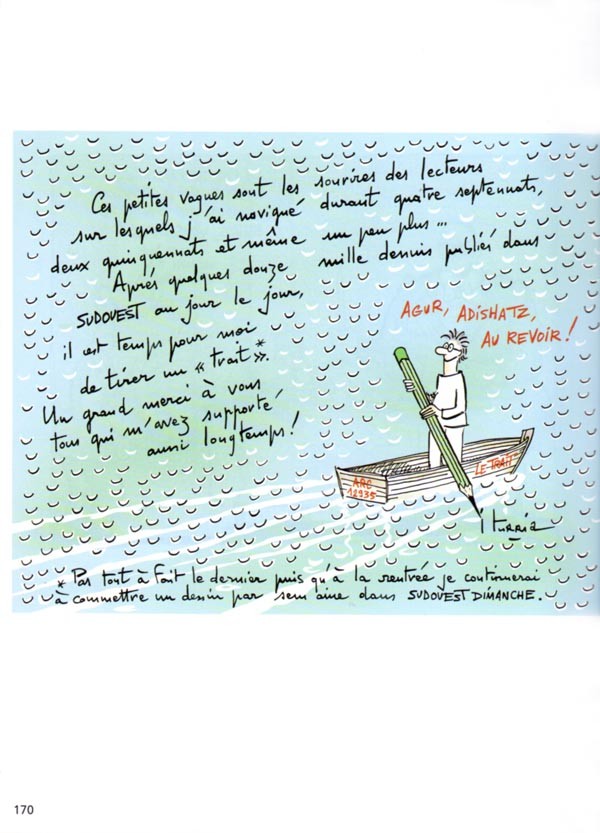 Ces petites vagues sont les sourires des lecteurs
sur lesquels j'ai navigué durant quatre septennats,
deux quinquennats et même un peu plus...
Après quelques douze mille dessins publiés dans
SUDOUEST au jour le jour,
il est temps pour moi
de tirer un « trait »*.
Un grand merci à vous
tous qui m'avez supporté
aussi longtemps!
AGUR, ADISHATZ,
AU REVOIR!
LE TRAIT
ARC
12935
iturria
* Pas tout à fait le dernier puis qu'à la rentrée je continuerai
à commettre un dessin par semaine dans SUDOUEST DIMANCHE.
170